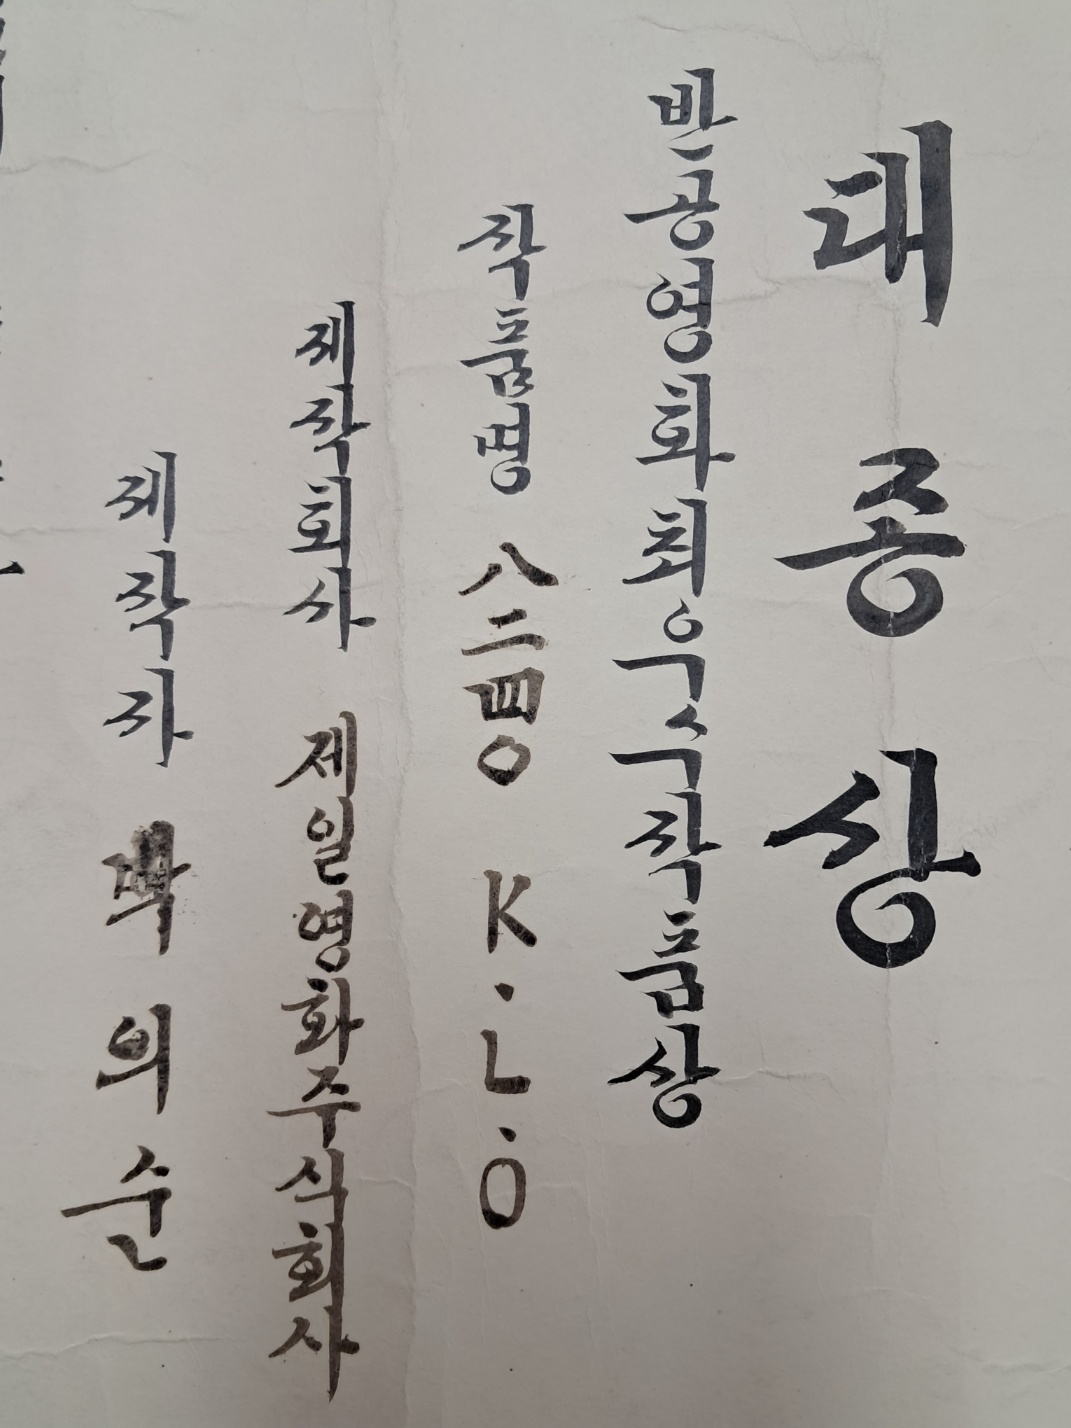 대종상
반공영화최우수작품상
작품명 八二四〇 K.L.O
제작회사 제일영화주식회사
제작자 박의순